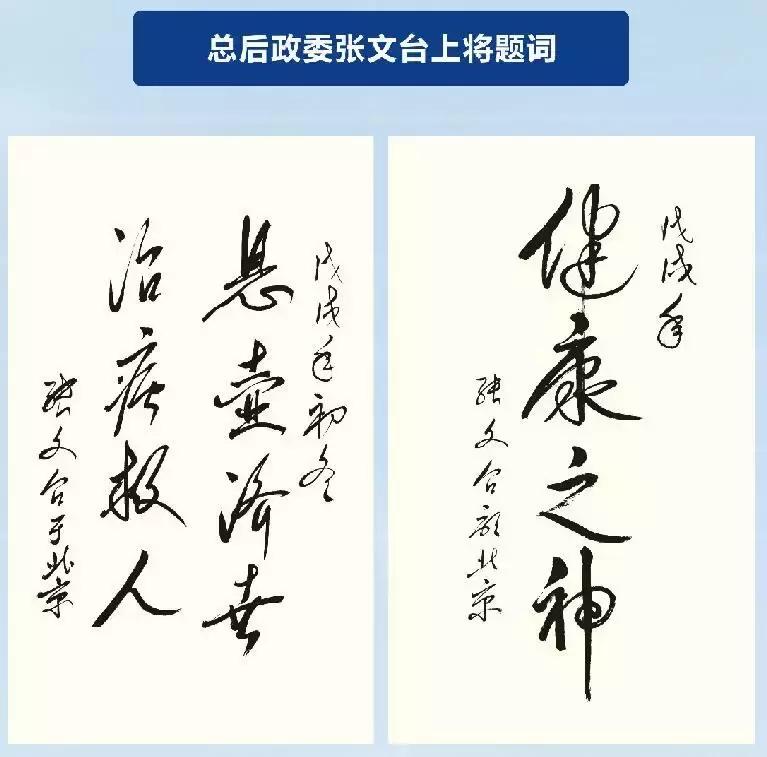 总后政委张文台上将题词
戊戌年初冬
悬壶济世
治病救人
张文台于北京
戊戌年
健康之神
张文台敬北京